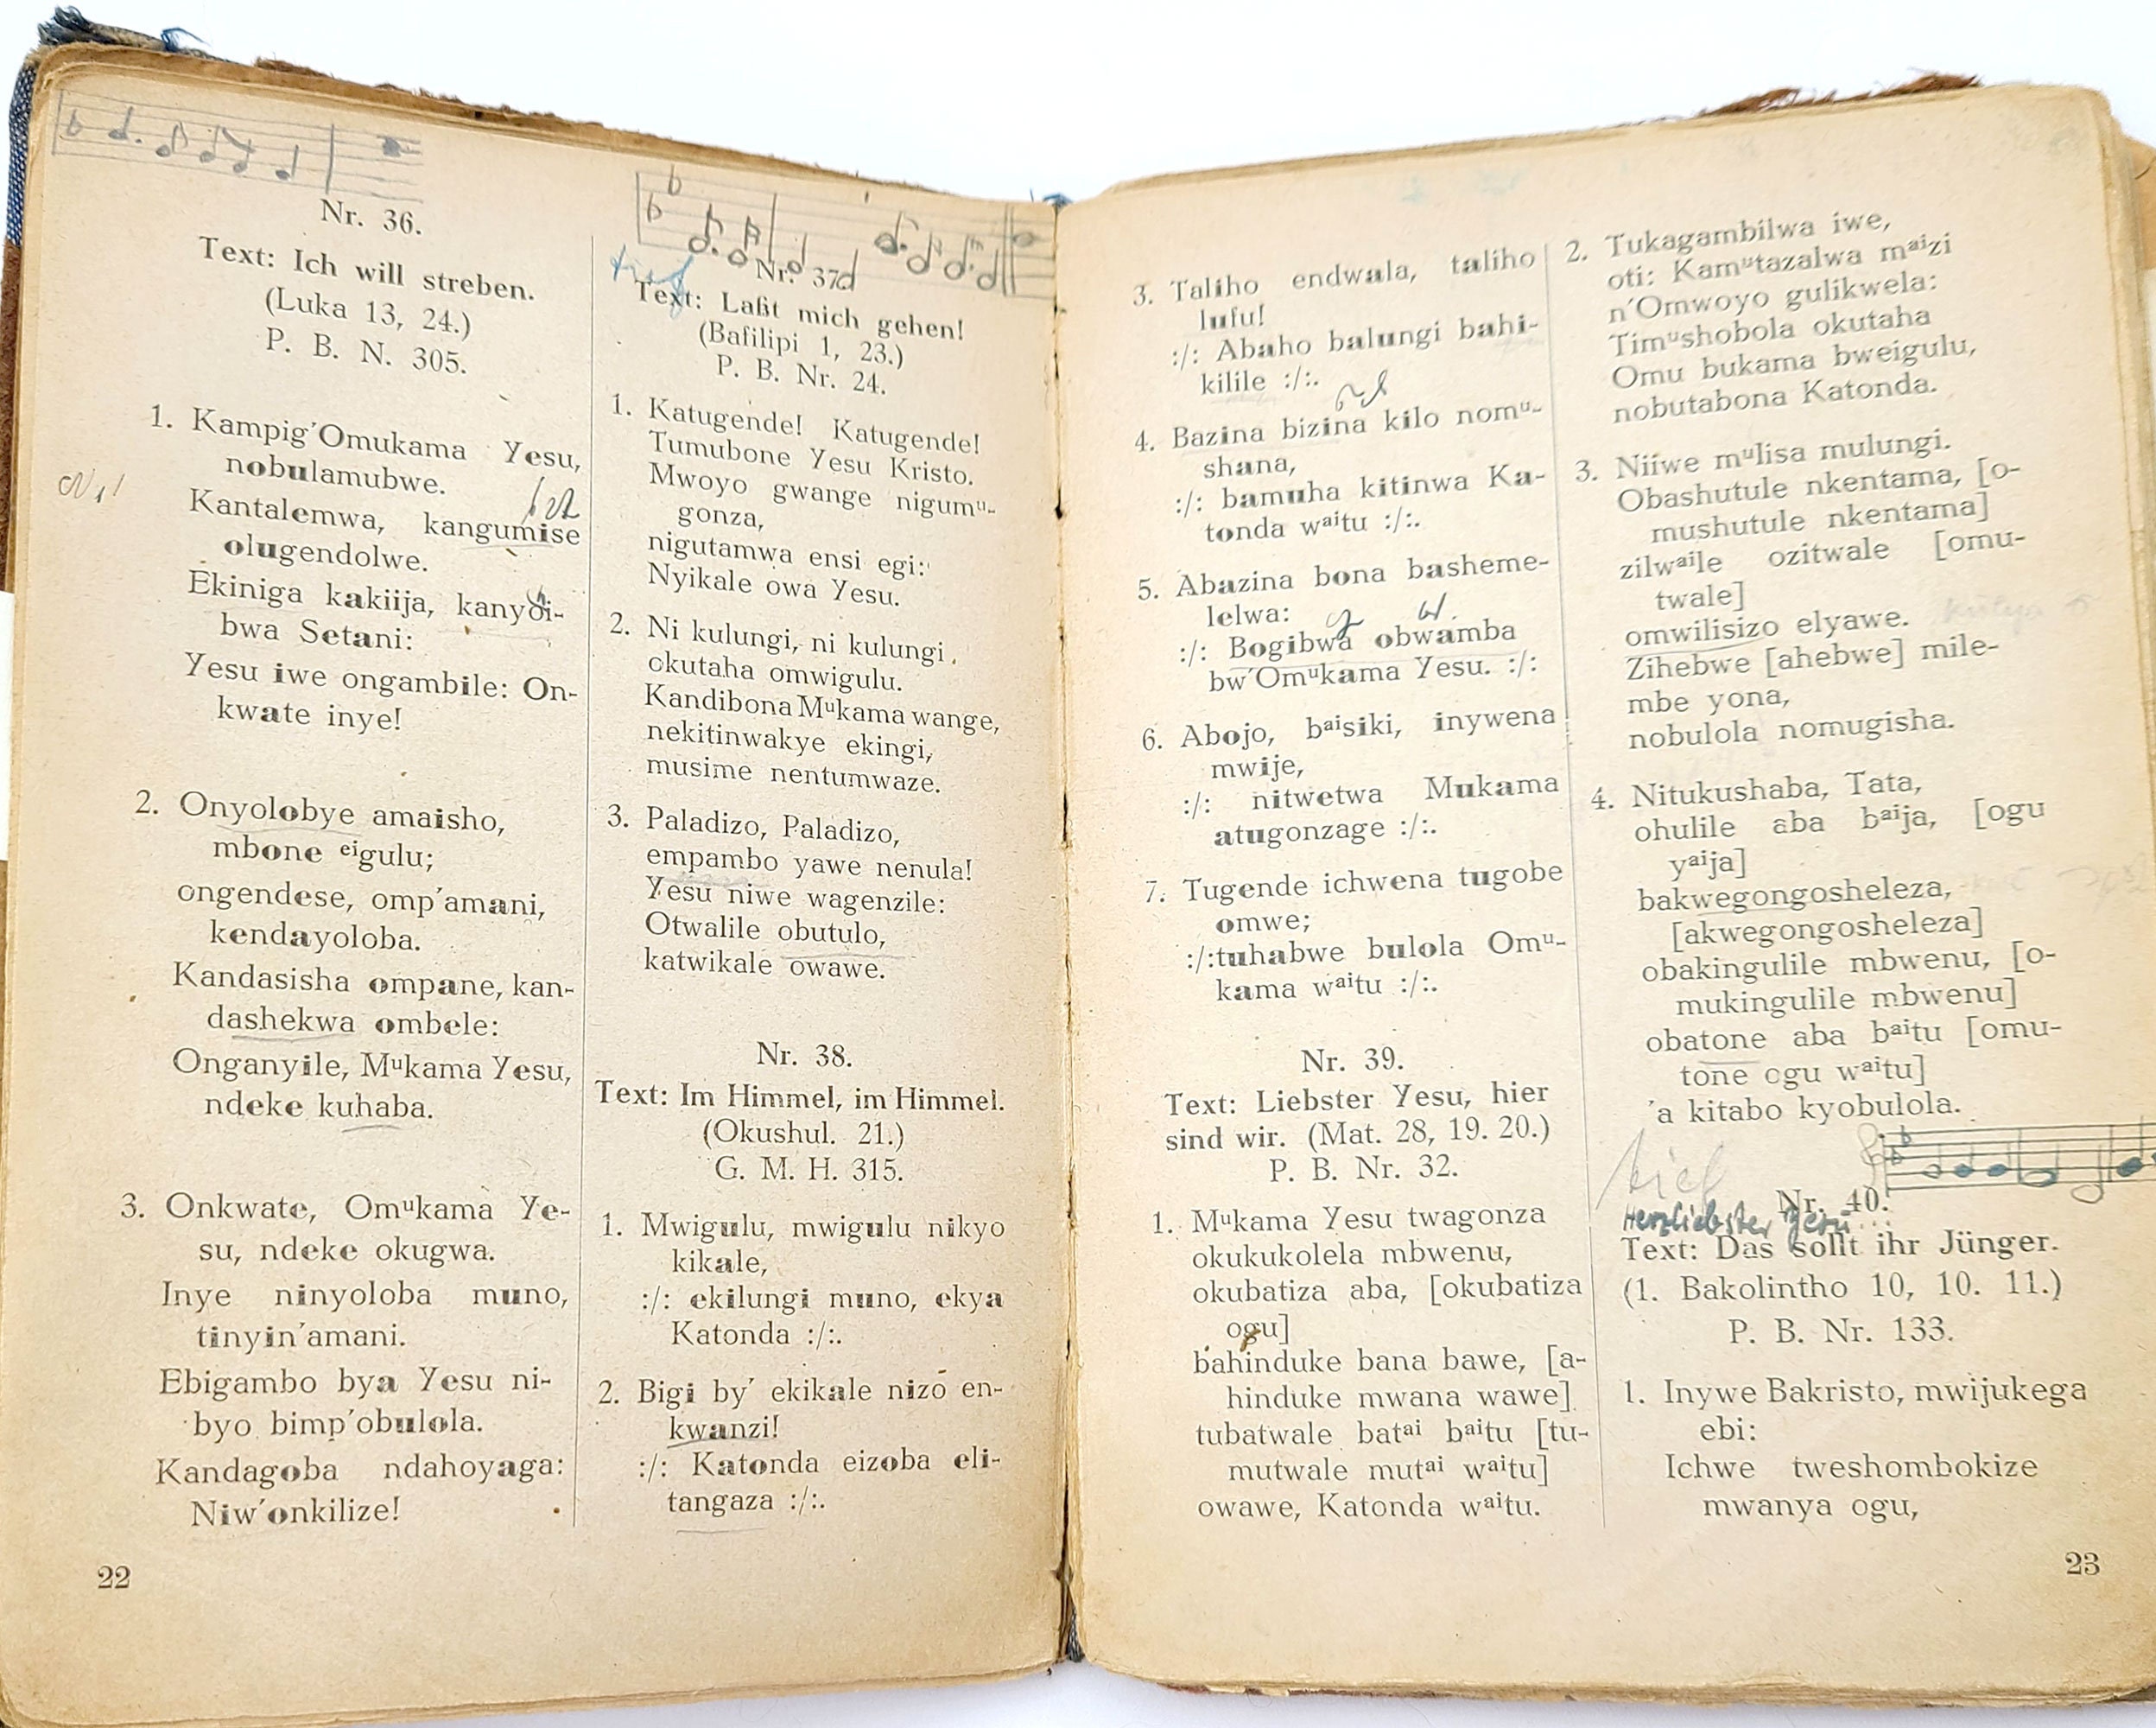 Nr. 36.
Text: Ich will streben.
(Luka 13, 24.)
P. B. N. 305.
1. Kampig'Omukama Yesu,
nobulamubwe.
Kantalemwa, kangumise
olugendolwe.
Ekiniga kakiija, kanyoi-
bwa Setani:
Yesu iwe ongambile: On-
kwate inye!
2. Onyolobye amaisho,
mbone eigulu;
ongendese, omp'amani,
kendayoloba.
Kandasisha ompane, kan-
dashekwa ombele:
Onganyile, Mukama Yesu,
ndeke kuhaba.
3. Onkwate, Omukama Ye-
su, ndeke okugwa.
Inye ninyoloba muno,
tinyin'amani.
Ebigambo bya Yesu ni-
byo bimp'obulola.
Kandagoba ndahoyaga:
Niw'onkilize!
22
tief
Nr. 37
Text: Laßt mich gehen!
(Bafilipi 1, 23.)
P. B. Nr. 24.
1. Katugende! Katugende!
Tumubone Yesu Kristo.
Mwoyo gwange nigumu-
gonza,
nigutamwa ensi egi:
Nyikale owa Yesu.
2. Ni kulungi, ni kulungi
okutaha omwigulu.
Kandibona Mukama wange,
nekitinwakye ekingi,
musime nentumwaze.
3. Paladizo, Paladizo,
empambo yawe nenula!
Yesu niwe wagenzile:
Otwalile obutulo,
katwikale owawe.
Nr. 38.
Text: Im Himmel, im Himmel.
(Okushul. 21.)
G. M. H. 315.
1. Mwigulu, mwigulu nikyo
kikale,
:/: ekilungi muno, ekya
Katonda :/:.
2. Bigi by' ekikale nizo en-
kwanzi!
:/: Katonda eizoba eli-
tangaza :/:.
3. Taliho endwala, taliho
lufu!
:/: Abaho balungi bahi-
kilile :/:.
4. Bazina bizina kilo nomu-
shana,
:/: bamuha kitinwa Ka-
tonda waitu :/:.
5. Abazina bona basheme-
lelwa:
:/: Bogibwa obwamba
bw'Omukama Yesu. :/:
6. Abojo, baisiki, inywena
mwije,
:/: nitwetwa Mukama
atugonzage :/:.
7. Tugende ichwena tugobe
omwe;
:/:tuhabwe bulola Omu-
kama waitu :/:.
Nr. 39.
Text: Liebster Yesu, hier
sind wir. (Mat. 28, 19. 20.)
P. B. Nr. 32.
1. Mukama Yesu twagonza
okukukolela mbwenu,
okubatiza aba, [okubatiza
ogu]
bahinduke bana bawe, [a-
hinduke mwana wawe]
tubatwale batai baitu [tu-
mutwale mutai waitu]
owawe, Katonda waitu.
2. Tukagambilwa iwe,
oti: Kamutazalwa maizi
n'Omwoyo gulikwela:
Timushobola okutaha
Omu bukama bweigulu,
nobutabona Katonda.
3. Niiwe mulisa mulungi.
Obashutule nkentama, [o-
mushutule nkentama]
zilwaile ozitwale [omu-
twale]
omwilisizo elyawe.
Zihebwe [ahebwe] mile-
mbe yona,
nobulola nomugisha.
4. Nitukushaba, Tata,
ohulile aba baija, [ogu
yaija]
bakwegongosheleza,
[akwegongosheleza]
obakingulile mbwenu, [o-
mukingulile mbwenu]
obatone aba baitu [omu-
tone ogu waitu]
'a kitabo kyobulola.
tief
Nr. 40.
Herzliebster Jesu...
Text: Das sollt ihr Jünger.
(1. Bakolintho 10, 10. 11.)
P. B. Nr. 133.
1. Inywe Bakristo, mwijukega
ebi:
Ichwe tweshombokize
mwanya ogu,
23